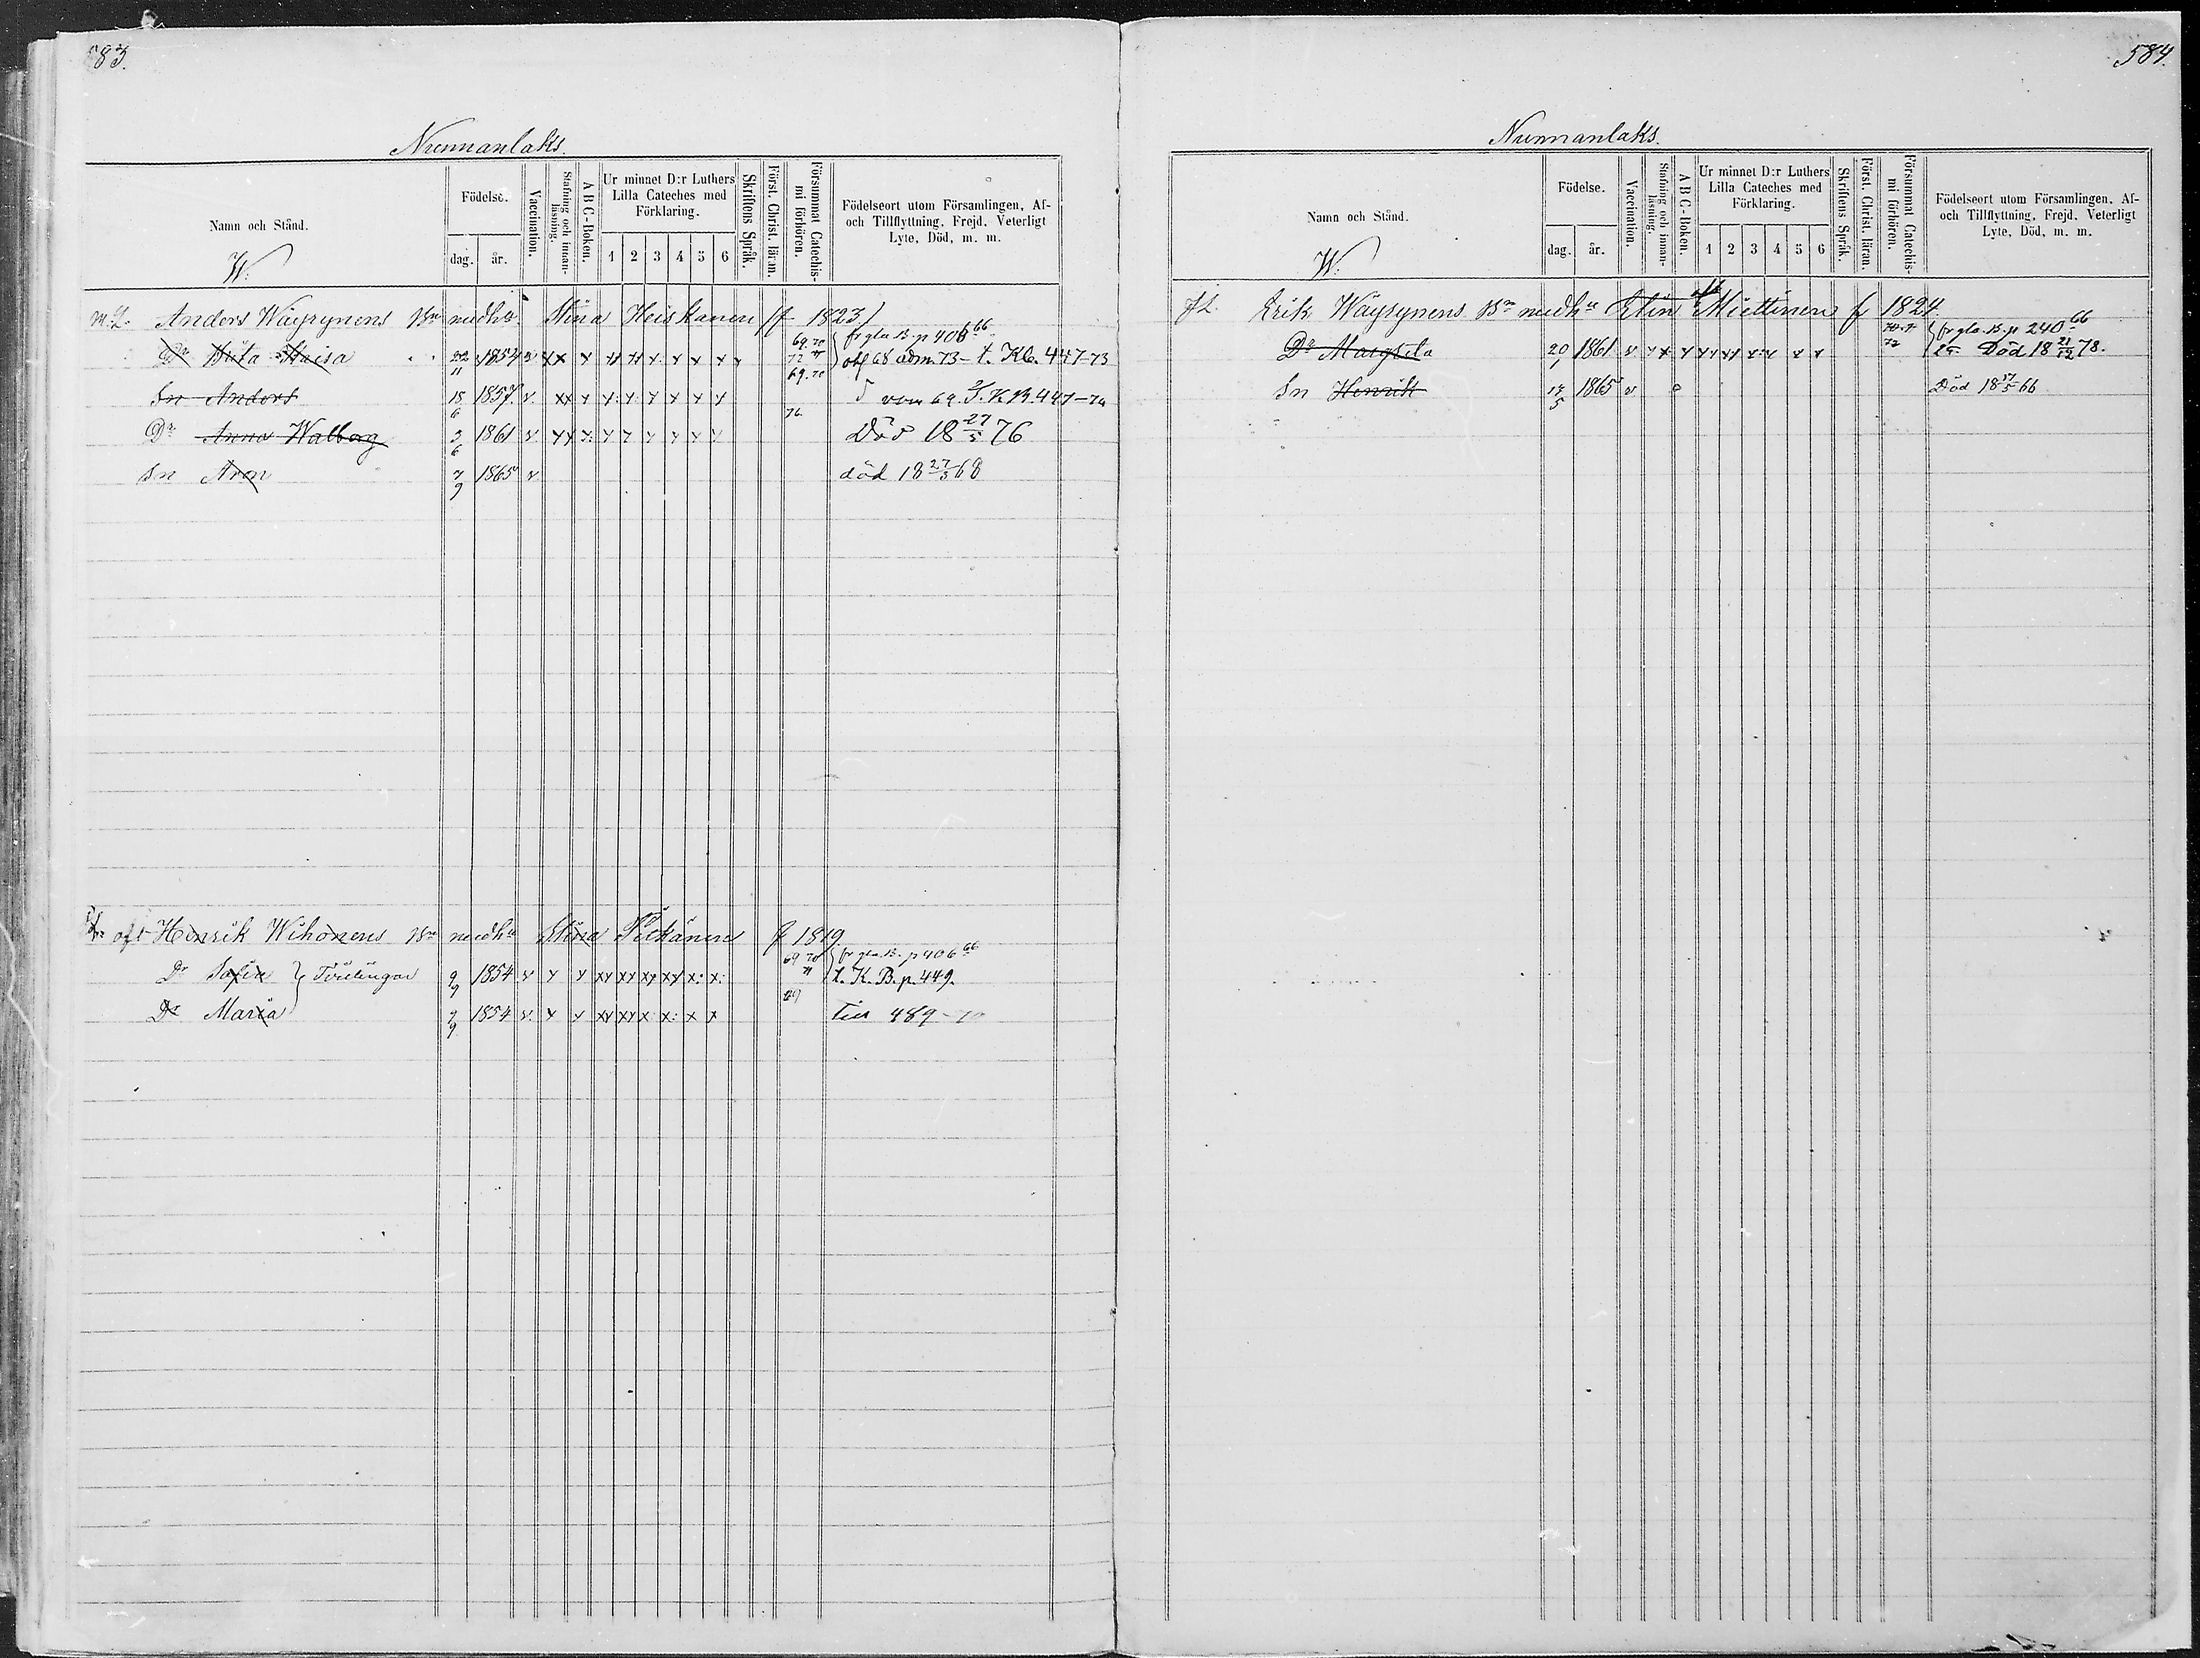 583.
Nunnanlaks.
Namn och Stånd.
W.
Födelse.
dag. år.
Vaccination.
Stafning och innan-läsning.
A B C-Boken.
Ur minnet D:r Luthers Lilla Cateches med Förklaring.
1 2 3 4 5 6
Skriftens Språk.
Först. Christ. läran.
Försummat Catechis-mi förhören.
Födelseort utom Församlingen, Af- och Tillflyttning, Frejd, Veterligt Lyte, Död, m. m.
Anders Wäyrynens Bn medh Heiskanen f 1823
69.70 fr gla B. p 406 66
Dr Kaisa 22/11 1854 72 adm. 73 - t. Kb. 447-73
69.70
Sn Anders 18/6 1857 447-74
76
Dr Anna Walborg 3/6 1861 Död 18 27/5 76
Sn Aron 7/9 1865 död 18 27/3 68
Henrik Wihonens Bn medh Stina Pitkänen f 1819
69 70 fr gla. B. p 406 66
Dr Sofia } Tvillingar 9/9 1854 71 t. K. B. p. 449.
Dr Maria 9/9 1854 489
584.
Nunnanlaks.
Namn och Stånd.
W.
Födelse.
dag. år.
Vaccination.
Stafning och innan-läsning.
A B C-Boken.
Ur minnet D:r Luthers Lilla Cateches med Förklaring.
1 2 3 4 5 6
Skriftens Språk.
Först. Christ. läran.
Försummat Catechis-mi förhören.
Födelseort utom Församlingen, Af- och Tillflyttning, Frejd, Veterligt Lyte, Död, m. m.
Erik Wäyrynens Bn medh Miettinen f 1824.
fr gla. B. p 240 66
Dr 20/1 1861 72 Död 18 21/12 78.
Sn Henrik 17/5 1865 Död 18 17/5 66